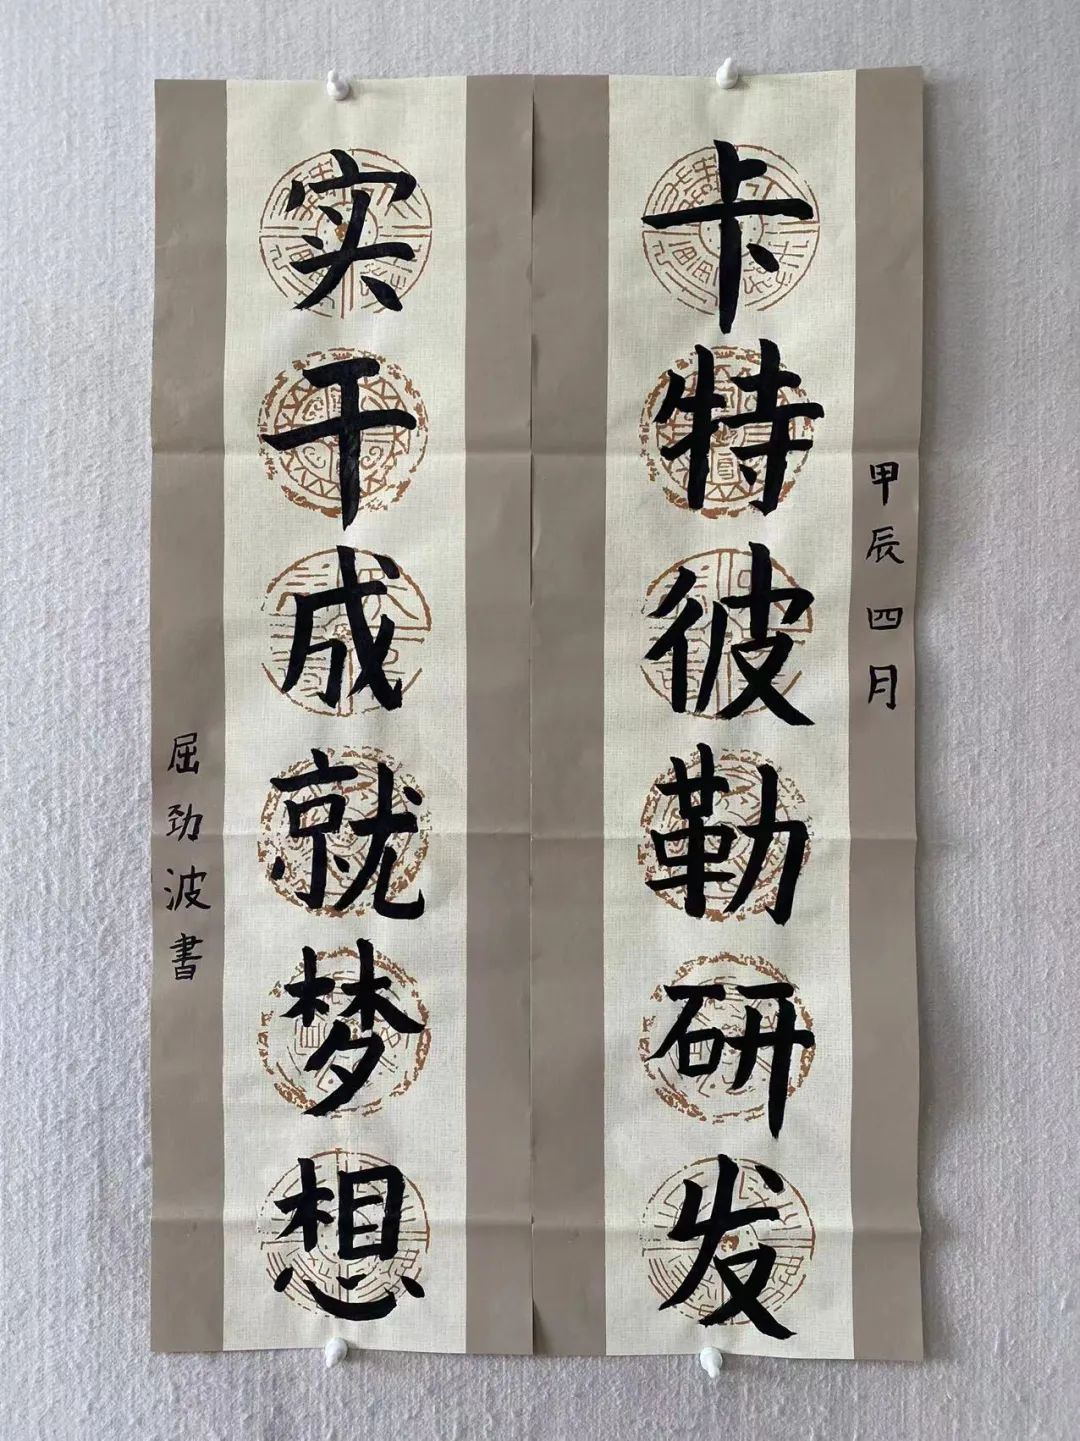 甲辰四月
卡特彼勒研发
实干成就梦想
屈劲波書